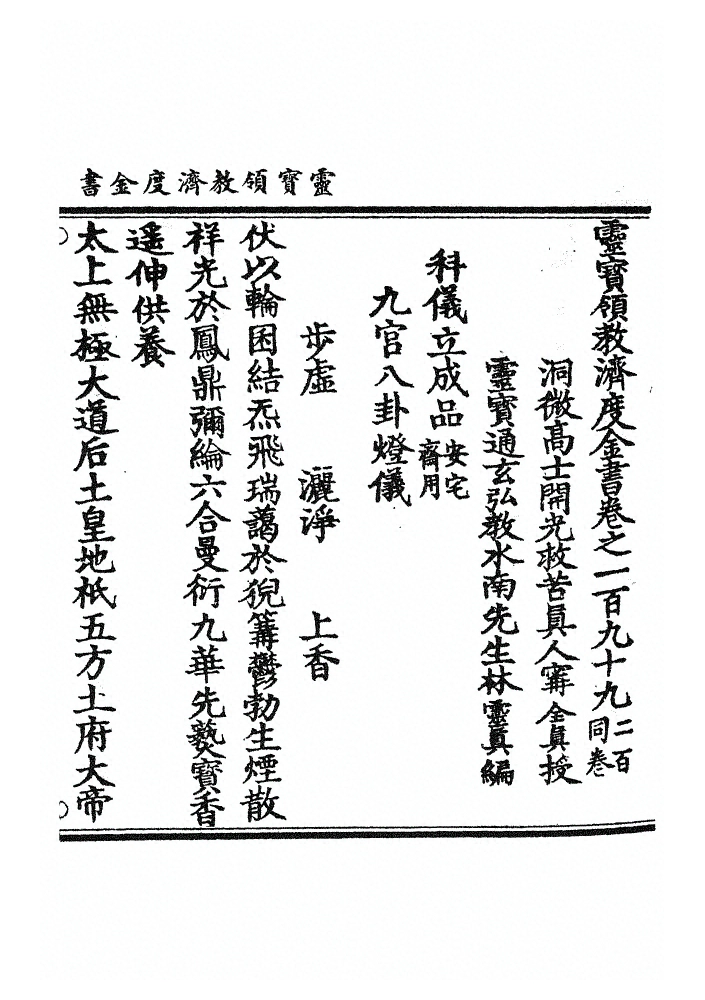 靈寶領教濟度金書
靈寶領教濟度金書卷之一百九十九二百同卷
洞微高士開光救苦眞人寗全眞授
靈寶通玄弘教水南先生林靈眞編
科儀立成品安宅齋用
九官八卦燈儀
步虛 灑淨 上香
伏以輪囷結炁飛瑞藹於猊篝鬱勃生煙散
祥光於鳳鼎彌綸六合曼衍九華先爇寶香
遥伸供養
太上無極大道后土皇地祇五方土府大帝